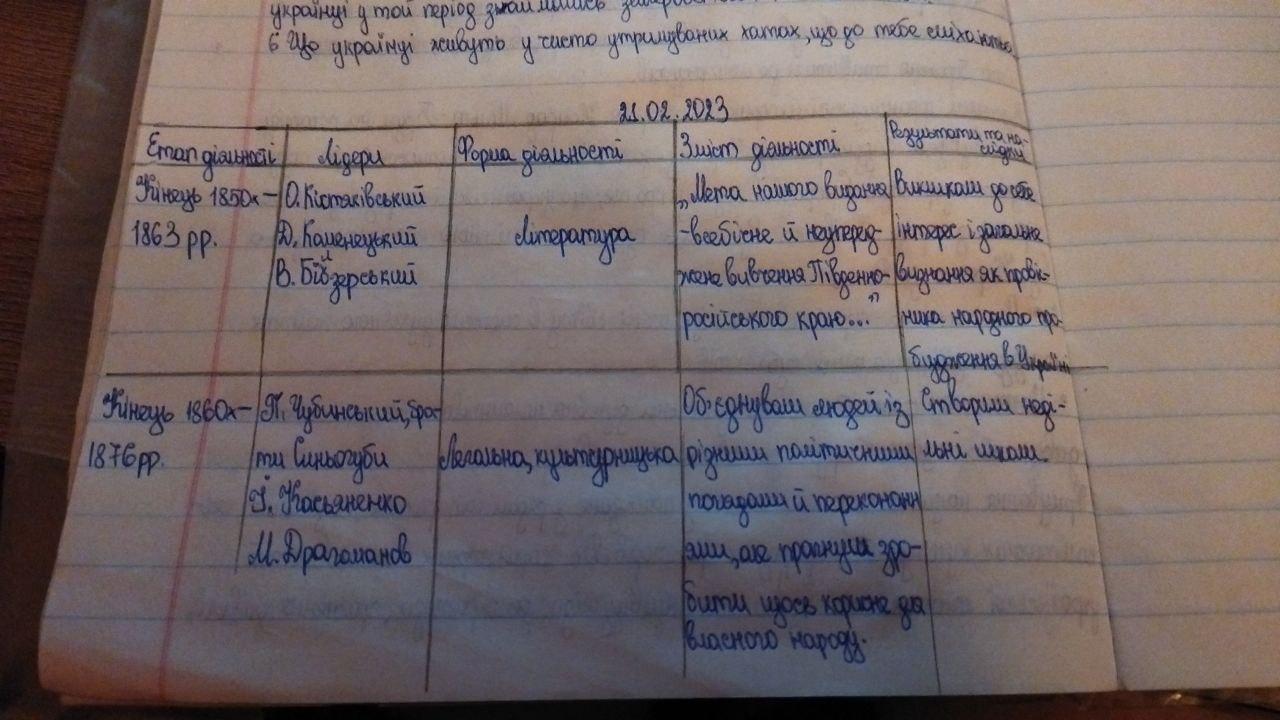 українці у той період
6 Що українці живуть у чисто утримуваних хатах, що до тебе сміхаються,
21.02.2023
Етап діяльності
Лідери
Форма діяльності
Зміст діяльності
Результати та на-
слідки
Кінець 1850х-
1863 рр.
О. Кістяківський
Д. Каменецький
В. Білозерський
Література
„Мета нашого видання
-всебічне й неуперед-
жене вивчення Південно-
російського краю..."
Викликали до себе
інтерес і загальне
визнання як провіс-
ника народного про-
будження в Україні
Кінець 1860х-
1876рр.
П. Чубинський, бра-
ти Синьогуби
Й. Касьяненко
М. Драгоманов
Легальна, культурницька
Об'єднували людей із
різними політичними
погядами й переконанн
ями, але прагнули зро-
бити щось корисне для
власного народу.
Створили неді-
льні школи.